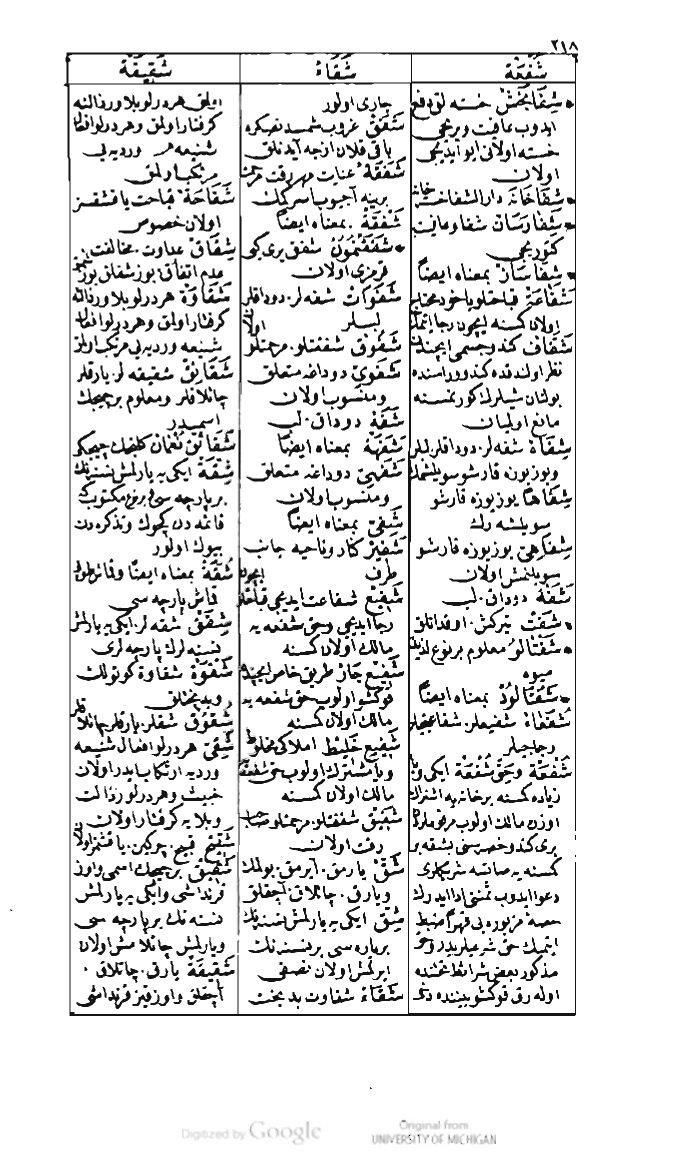 ٢١٨
شُفْعَة
شَقَاءْ
شَقِيقَة
• شِفَابَخْشْ خسته لق دفع
ايدوب عافيت ويريجى
خسته اولانى ايو ايديجى
اولان
• شِفَاخَانَهْ دار الشفا خسته خانه
• شِفَارَسَانْ شفا وعافيت
كتوريجى
• شِفَاسَانْ بمعناه ايضاً
شَفَاعَةْ قباحتلو ياخود محتاج
اولان كسنه ايچون رجا ايتمك
شَفَّافْ كندو جسمى ايچندن
نظر اولندقده كندو وراسنده
بولنان شيلرك كورنمسنه
مانع اولميان
شِفَاهْ شفه لر. دوداقلر. لبلر
ويوزيوزه قارشو سويلشمك
شِفَاهًا يوز يوزه قارشو
سويلشه رك
شِفَاهِى يوز يوزه قارشو
سويلنمش اولان
شَفَةْ دوداق. لب
• شَفْتْ
• شَفْتَالُو معلوم بر نوع لذيذ
ميوه
• شَفْتَالُودْ بمعناه ايضاً
شُفَعَاءْ شفيعلر. شفاعتجيلر
رجاجيلر
شُفْعَةْ وحَقِّ شُفْعَةْ ايكى ويا
زياده كسنه بر خانه يه اشتراك
اوزره مالك اولوب مرقوملردن
برى كندو حصه سنى بشقه بر
كسنه يه صاتسه شريكلرى
دعوا ايدوب ثمننى ادا ايدرك
حصهٔ مزبوره يى قهراً ضبط
ايتمك حق شرعيلريدر وحق
مذكور بعض شرائط تحتنده
اوله رق قوكشو بيننده دخى
جارى اولور
شَفَقْ غروب شمسدنصكره
باقى قلان ازجه آيدنلق
شَفَقَةْ عنايت مهر رقت مرحمت
برينه آجيوب اسركمك
شَفْقَةْ بمعناه ايضاً
• شَفَقْگُونْ شفق رنكى كبى
قرمزى اولان
شَفَوَاتْ شفه لر. دوداقلر
لبلر
شَفُوقْ شفقتلو. مرحمتلو اولان
شَفَوِىْ دوداغه متعلق
ومنسوب اولان
شَفَةْ دوداق. لب
شَفَهَةْ بمعناه ايضاً
شَفَهِىْ دوداغه متعلق
ومنسوب اولان
شَفِىْ بمعناه ايضاً
شَفِيرْ كنار وناحيه جانب
طرف
شَفِيعْ شفاعت ايديجى قباحتلو ايچون
رجا ايديجى وحق شفعه يه
مالك اولان كسنه
شَفِيعِ جَارْ طريق خاص ايچنده
قوكشو اولوب حق شفعه يه
مالك اولان كسنه
شَفِيعِ خَلِيطْ املاكى مخلوط
ويا مشترك اولوب حق شفعه يه
مالك اولان كسنه
شَفِيقْ شفقتلو. مرحمتلو صاحب
رقت اولان
شَقّْ يارمق. آيرمق. بولمك
ويارق. چاتلاق. آچقلق
شِقّْ ايكى يه يارلمش نسنه نك
بر پاره سى بر نسنه نك
ايرلمش اولان نصفى
شَقَاءْ شقاوت بد بخت
اولمق هر درلو بلا ورذالته
كرفتار اولمق وهر درلو افعال
شنيعه وردیه يى
مرتكب اولمق
شَقَاحَةْ قباحت ياقشقسز
اولان خصوص
شِقَاقْ عداوت. مخالفت
عدم اتفاق بوزشقلق بوزشمه
شَقَاوَةْ هر درلو بلا ورذالته
كرفتار اولمق وهر درلو افعال
شنيعه وردیه يى مرتكب اولمق
شَقَائِقْ شقيقه لر. يارقلر
چاتلاقلر ومعلوم بر چيچك
اسميدر
شَقَائِقِ نُعْمَانْ كلينجك چيچكى
شِقَّةْ ايكى يه يارلمش نسنه نك
بر پارچه سى وبر نوع مكتوبكه
قائمه دن كچوك وتذكره دن
بيوك اولور
شُقَّةْ بمعناه ايضاً وقماش طوپى
قماش پارچه سى
شِقَقْ شقه لر. ايكى يه يارلمش
نسنه لرك پارچه لرى
شَقْوَةْ شقاوة كوتولك
وبد بختلق
شُقُوقْ شقلر. يارقلر. چاتلاقلر
شَقِىْ هر درلو افعال شنيعه
وردیه ارتكاب ايدر اولان
خبيث وهر درلو رذالت
وبلايه كرفتار اولان
شَقِيحْ قبيح. چركين. ياقشقسز اولان
شَقِيقْ بر چيچك اسمى واوز
قرنداشى وايكى يه يارلمش
نسنه نك بر پارچه سى
ويارلمش چاتلامش اولان
شَقِيقَةْ يارق. چاتلاق.
آچقلق واوز قيز قرنداشى
Digitized by Google
Original from
UNIVERSITY OF MICHIGAN